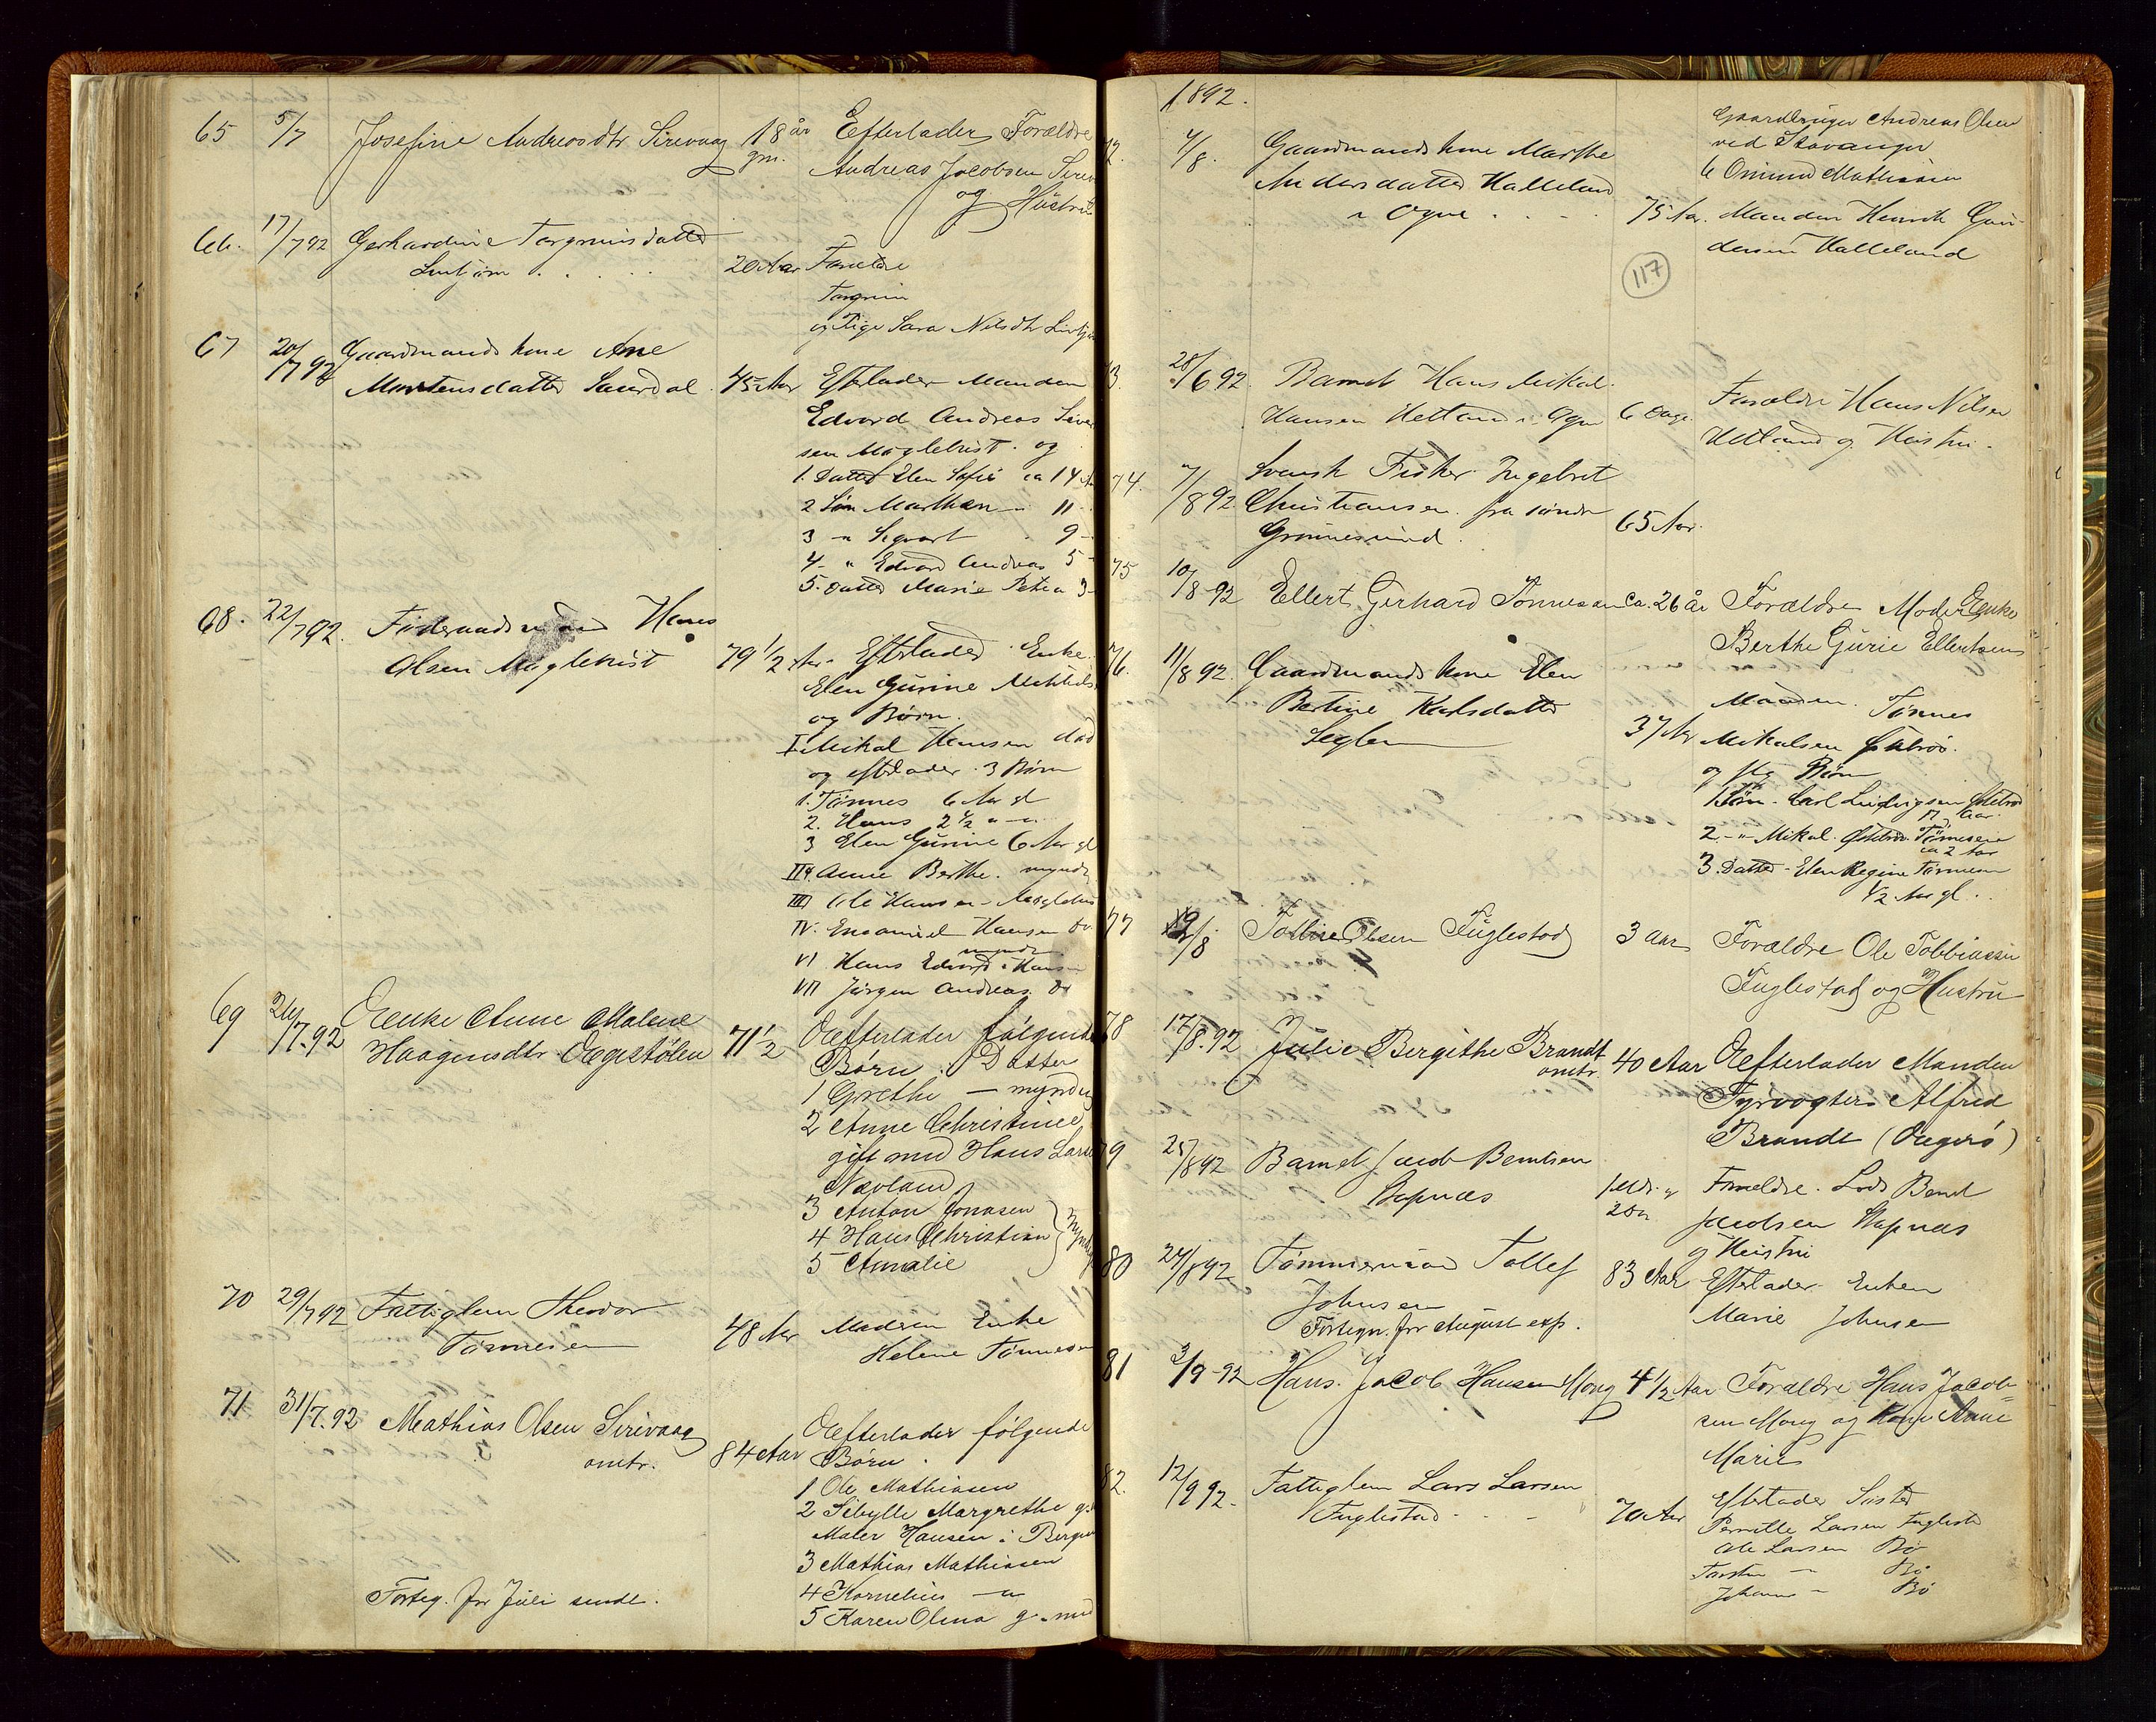 65 5/7 Josefine Andreasdtr Sirevaag 18 år Efterlader Forældre
gm. Andreas Jacobsen
og Hustru
66. 17/7 92 Gerhardine Torgrimsdatter
20 Aar Forældre
Torgrim
og Pige Sara Nilsdtr
67 20/7 92 Gaardmandskone Ane
Mortensdatter Saurdal 45 Aar Efterlader Manden
Edvard Andreas
sen Møglebust og
1. Datter Elen Sofie ca 14
2 Søn Marthon - 11
3 " Sigvart - 9
4 - " Edvard Andreas 5
5. Datter Marie Petra 3
68. 22/7 92. Hans
Olsen Møglebust 79 1/2 Aar Efterlader Enke
Elen Gurine
og Børn.
I Mikal Hansen død
og efterlader 3 Børn
1. Tønnes 6 Aar gl
2. Hans 2 1/2 " - "
3 Elen Gurine 6 Aar gl
Anne Berthe. myndig
III Ole Hansen
IV. Enamuel Hansen Do
myndig
VI Hans Edvard Hansen
VII Jørgen Andreas Do
69 26/7.92 Enke Anne Malene
Haagensdtr Egestølen 71 1/2 Efterlader følgende
Børn: Datter
1 Grethe — myndig
2 Anne Christine
gift med Hans
Navland
3 Anton Jonasen
4 Hans Christian
5 Amalie
70 29/7 92 Fattiglem Theodor
Tønnesen 48 Aar Moderen Enke
Helene Tønnesen
71 31/7.92 Mathias Olsen Sirevaag Efterlader følgende
omtr. 84 Aar Børn.
1 Ole Mathiasen
2 Sibylle Margrethe
Maler Hansen i Bergen
3 Mathias Mathiasen
4 Kornelius — "
5 Karen Olena g. med
Forteg. for Juli sendt.
1892.
Gaardbruger Andreas Olsen
ved Stavanger
6 Omund Mathiasen
4/8. Gaardmandskone Marthe
Andersdatter Halleland
i Ogne . . . 75 Aar. Manden Henrik Gun-
dersen Halleland
117
28/6 92. Barnet Hans Mikal
Hansen Hetland i Ogne 6 Dage Forældre Hans Nilsen
Hetland og Hustru.
74. 7/8 92. Svensk Fisker Ingebret
Christiansen fra søndre
65 Aar.
75 10/8-92 Ellert Gerhard Tønnesen ca. 26 år Forældre Moder Enke
Berthe Gurie Ellertsen
76. 11/8 92. Gaardmandskone Elen
Bertine Karlsdatter
Manden Tønnes
37 Aar Mikalsen
og flg Børn
1 Søn - Carl Ludvigsen
17 Aar.
2 - " - Mikal Tønnesen
ca 2 Aar
3. Datter - Elen Regine Tønnesen
1/2 Aar gl.
77 /8 Olsen Fuglestad 3 aar Forældre Ole Tobbiassen
Fuglestad og Hustru
78 17/8.92 Julie Bergithe Brandt
omtr. 40 Aar Efterlader Manden
Fyrvogter Alfred
Brandt (Egerø)
79 25/8 92 Barnet Jacob Berntsen
Stapnæs Forældre. Lods Bernt
Jacobsen Stapnæs
og Hustru
80 27/8 92 Tømmermand Tollef
Johnsen 83 Aar Efterlader Enken
Marie Johnsen
Fortegn. for August exp.
81 3/9-92 Hans Jacob Hansen Mong 4 1/2 Aar Forældre Hans Jacob-
sen Mong og Kone Anne
Marie
82. 12/9 92. Fattiglem Lars Larsen
Fuglestad . . . 70 Aar Efterlader Søster
Pernille Larsen Fuglestad
Ole Larsen Bø
Torsten — " Bø
Johannes — Bø